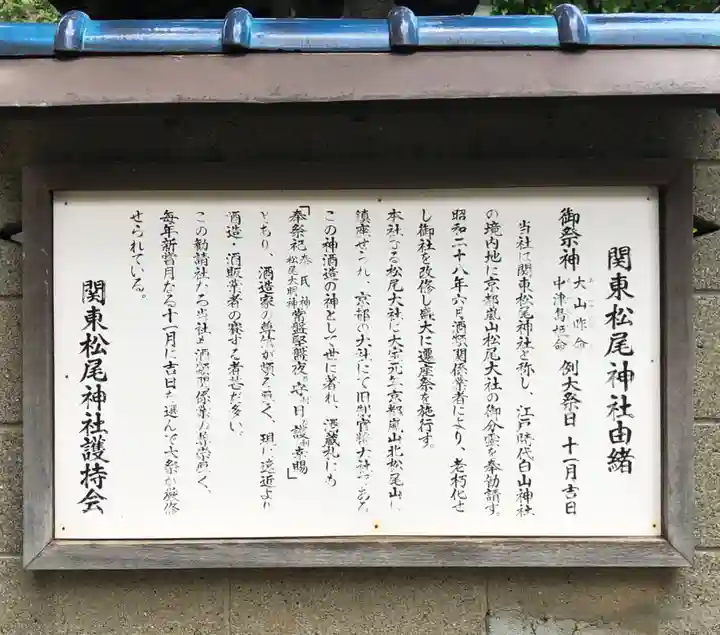 関東松尾神社由緒
御祭神 大山咋命 中津島姫命 例大祭日 十一月吉日
当社は関東松尾神社と称し、江戸時代白山神社
の境内地に京都嵐山松尾大社の御分霊を奉勧請す。
昭和二十八年六月酒類関係業者により、老朽化せ
し御社を改修し盛大に遷座祭を施行す。
本社なる松尾大社は大宝元年京都嵐山北松尾山に
鎮座せられ、京都の大社にて旧制官幣大社である
この神酒造の神として世に著れ、酒蔵札にも
「奉祭祀 秦氏神 松尾大明神 常盤堅磐夜 守日 護 幸賜」
とあり、酒造家の尊信が頗る悪く、現に遠近より
酒造・酒販業者の賽する者甚だ多い。
この勧請社たる当社も酒類関係業の尊崇悪く、
毎年新嘗月なる十一月に吉日を選んで大祭が厳修
せられている。
関東松尾神社護持会